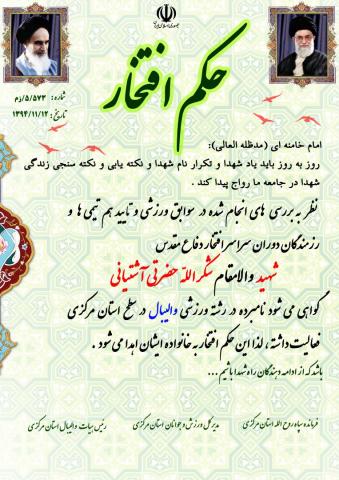 جمهوری اسلامی ایران
حکم افتخار
شماره: ۵/۵۷۳/زم
تاریخ: ۱۳۹۴/۱۱/۱۲
امام خامنه ای (مدظله العالی):
روز به روز باید یاد شهدا و تکرار نام شهدا و نکته یابی و نکته سنجی زندگی
شهدا در جامعه ما رواج پیدا کند .
نظر به بررسی های انجام شده در سوابق ورزشی و تایید هم تیمی ها و
رزمندگان دوران سراسر افتخار دفاع مقدس
شهید والامقام شکرالله حضرتی آشتیانی
گواهی می شود نامبرده در رشته ورزشی والیبال در سطح استان مرکزی
فعالیت داشته ، لذا این حکم افتخار به خانواده ایشان اهدا می شود .
باشد که از ادامه دهندگان راه شهدا باشیم ...
فرمانده سپاه روح الله استان مرکزی
مدیر کل ورزش و جوانان استان مرکزی
رئیس هیات والیبال استان مرکزی